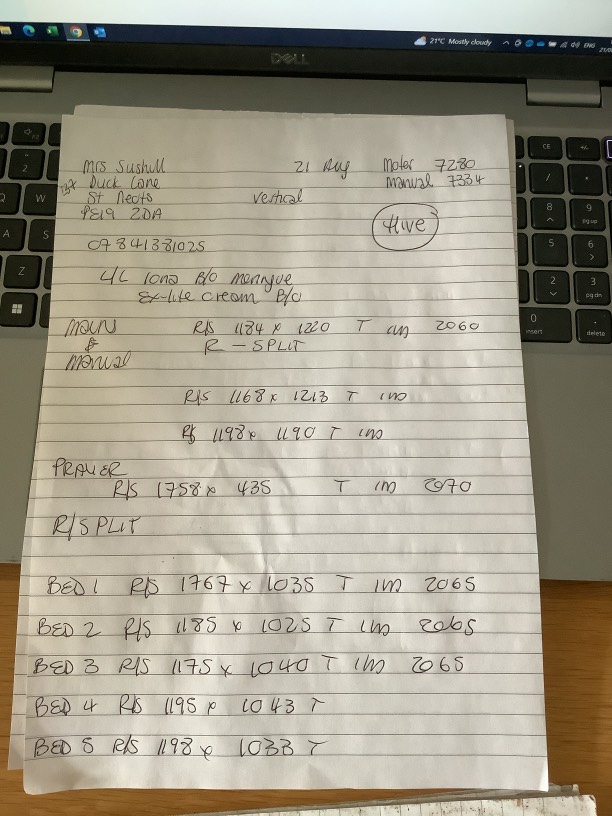 21°C Mostly cloudy
ENG
DELL
Mrs Sushill 21 Aug Motor 7280
Duck Lane Manual 7334
St Neots Vertical
PE19 2DA Hive
07841381025
L/L Iona B/O Meringue
Ex-lite cream B/O
R/S 1184 x 1220 T im 2060
& R - SPLIT
Manual
R/S 1168 x 1213 T im
R/S 1198 x 1190 T im
R/S 1758 x 435 T im 2070
R/SPLIT
BED 1 R/S 1767 x 1035 T im 2065
BED 2 R/S 1185 x 1025 T im 2065
BED 3 R/S 1175 x 1040 T im 2065
BED 4 R/S 1195 x 1043 T
BED 5 R/S 1198 x 1033 T